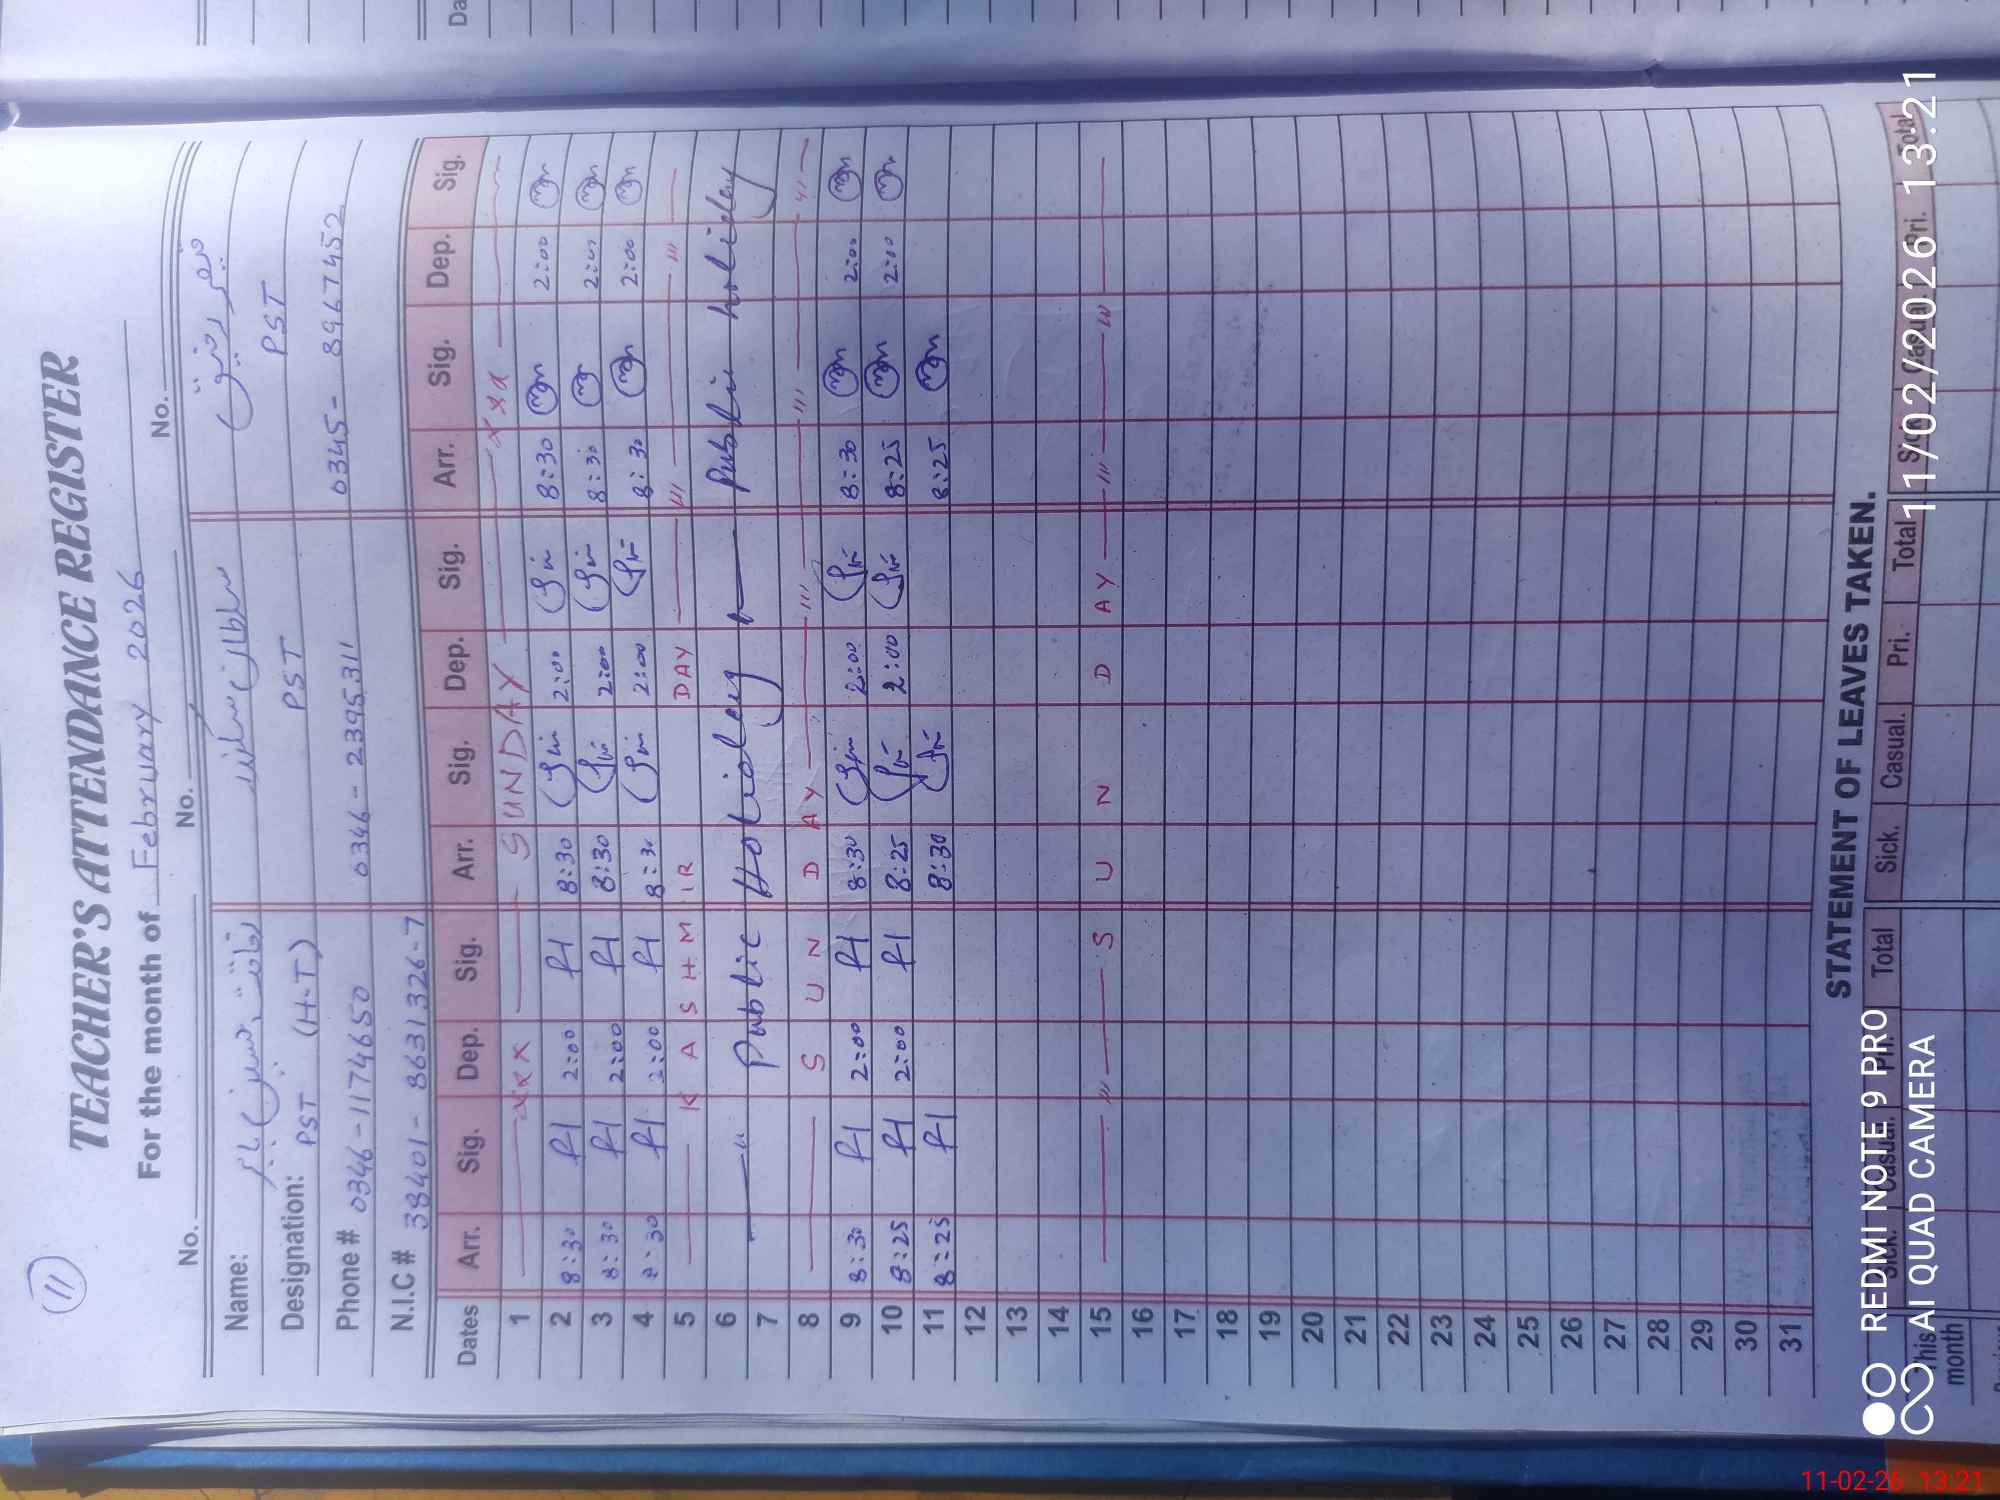 11
TEACHER'S ATTENDANCE REGISTER
For the month of February 2026
No. No. No.
Name: سلطان سکندر
Designation: PST (H-T) PST PST
Phone # 0346-1174650 0346-2395311 0345-8967452
N.I.C # 38401-8631326-7
Dates Arr. Sig. Dep. Sig. Arr. Sig. Dep. Sig. Arr. Sig. Dep. Sig.
1 xxx SUNDAY xxx
2 8:30 2:00 8:30 2:00 8:30 2:00
3 8:30 2:00 8:30 2:00 8:30 2:00
4 8:30 2:00 8:30 2:00 8:30 2:00
5 KASHMIR DAY
6 Public Holiday Public holiday
7
8 SUNDAY
9 8:30 2:00 8:30 2:00 8:30 2:00
10 8:25 2:00 8:25 2:00 8:25 2:00
11 8:25 8:30 8:25
12
13
14
15 SUN DAY
16
17
18
19
20
21
22
23
24
25
26
27
28
29
30
31
STATEMENT OF LEAVES TAKEN.
Sick. Casual. Pri. Total Sick. Casual. Pri. Total Casual Pri. Total
This month
REDMI NOTE 9 PRO
AI QUAD CAMERA
11/02/2026 13:21
11-02-26 13:21